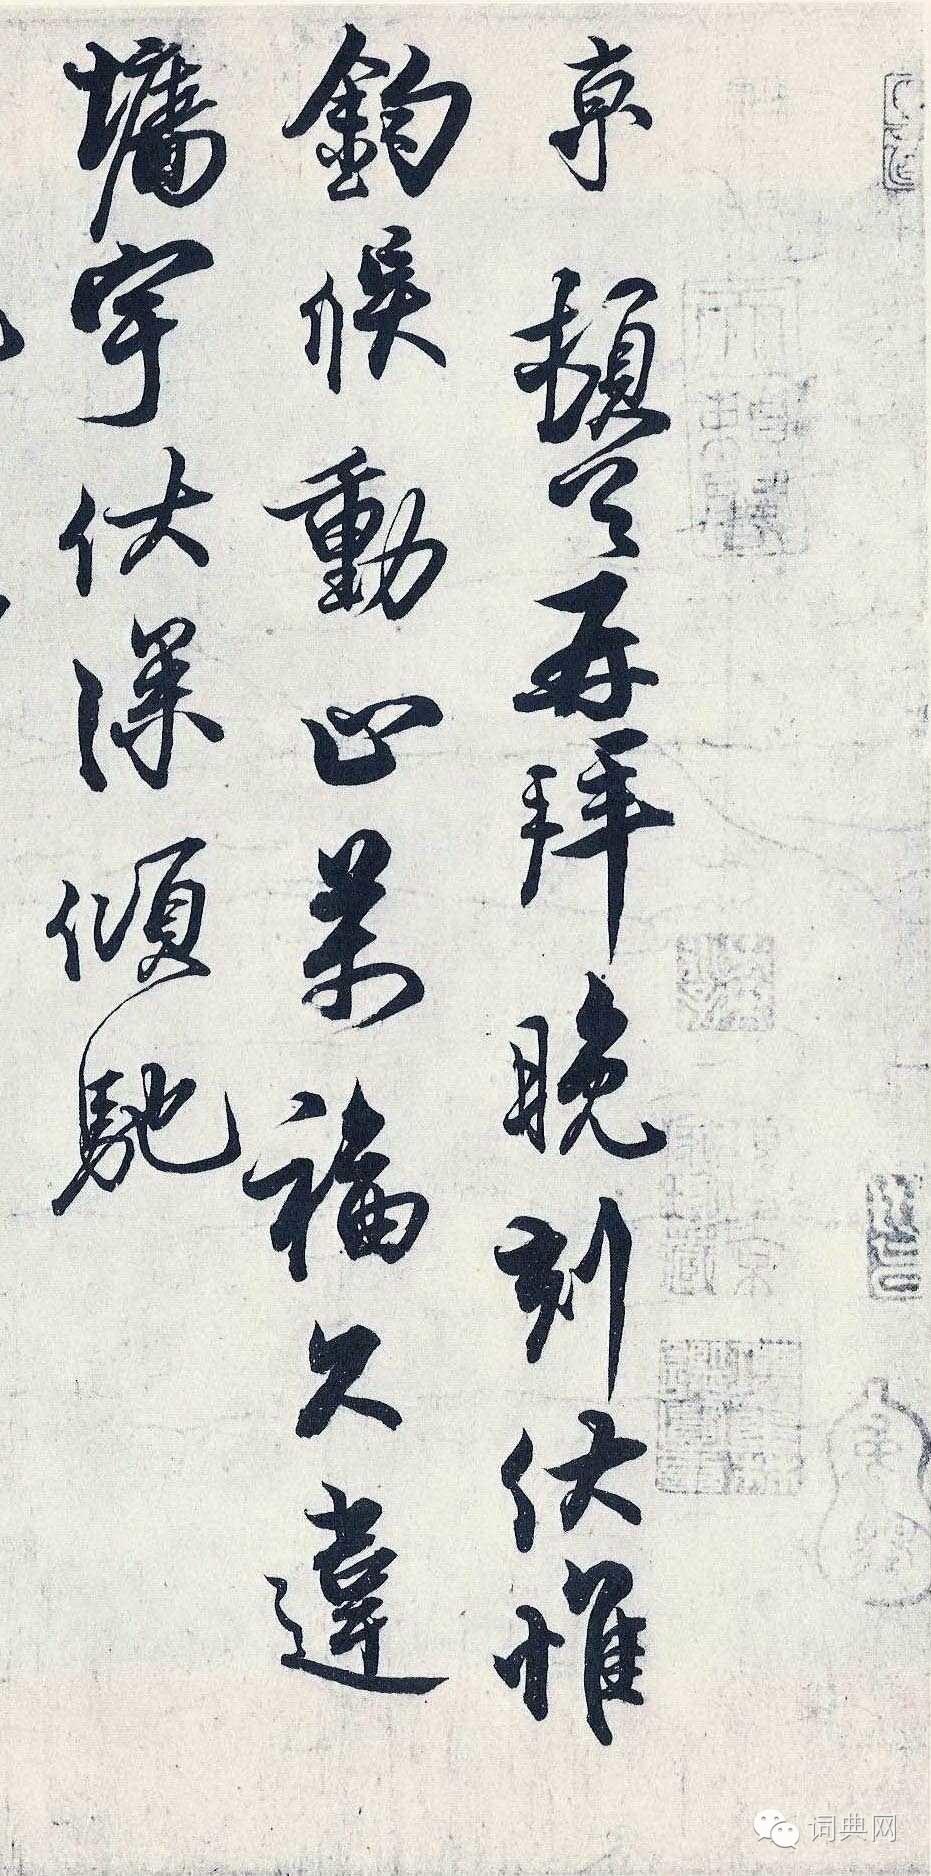 京 頓首再拜晚刻伏惟
鈞候動止萬福久違
墉宇伏深傾馳
词典网